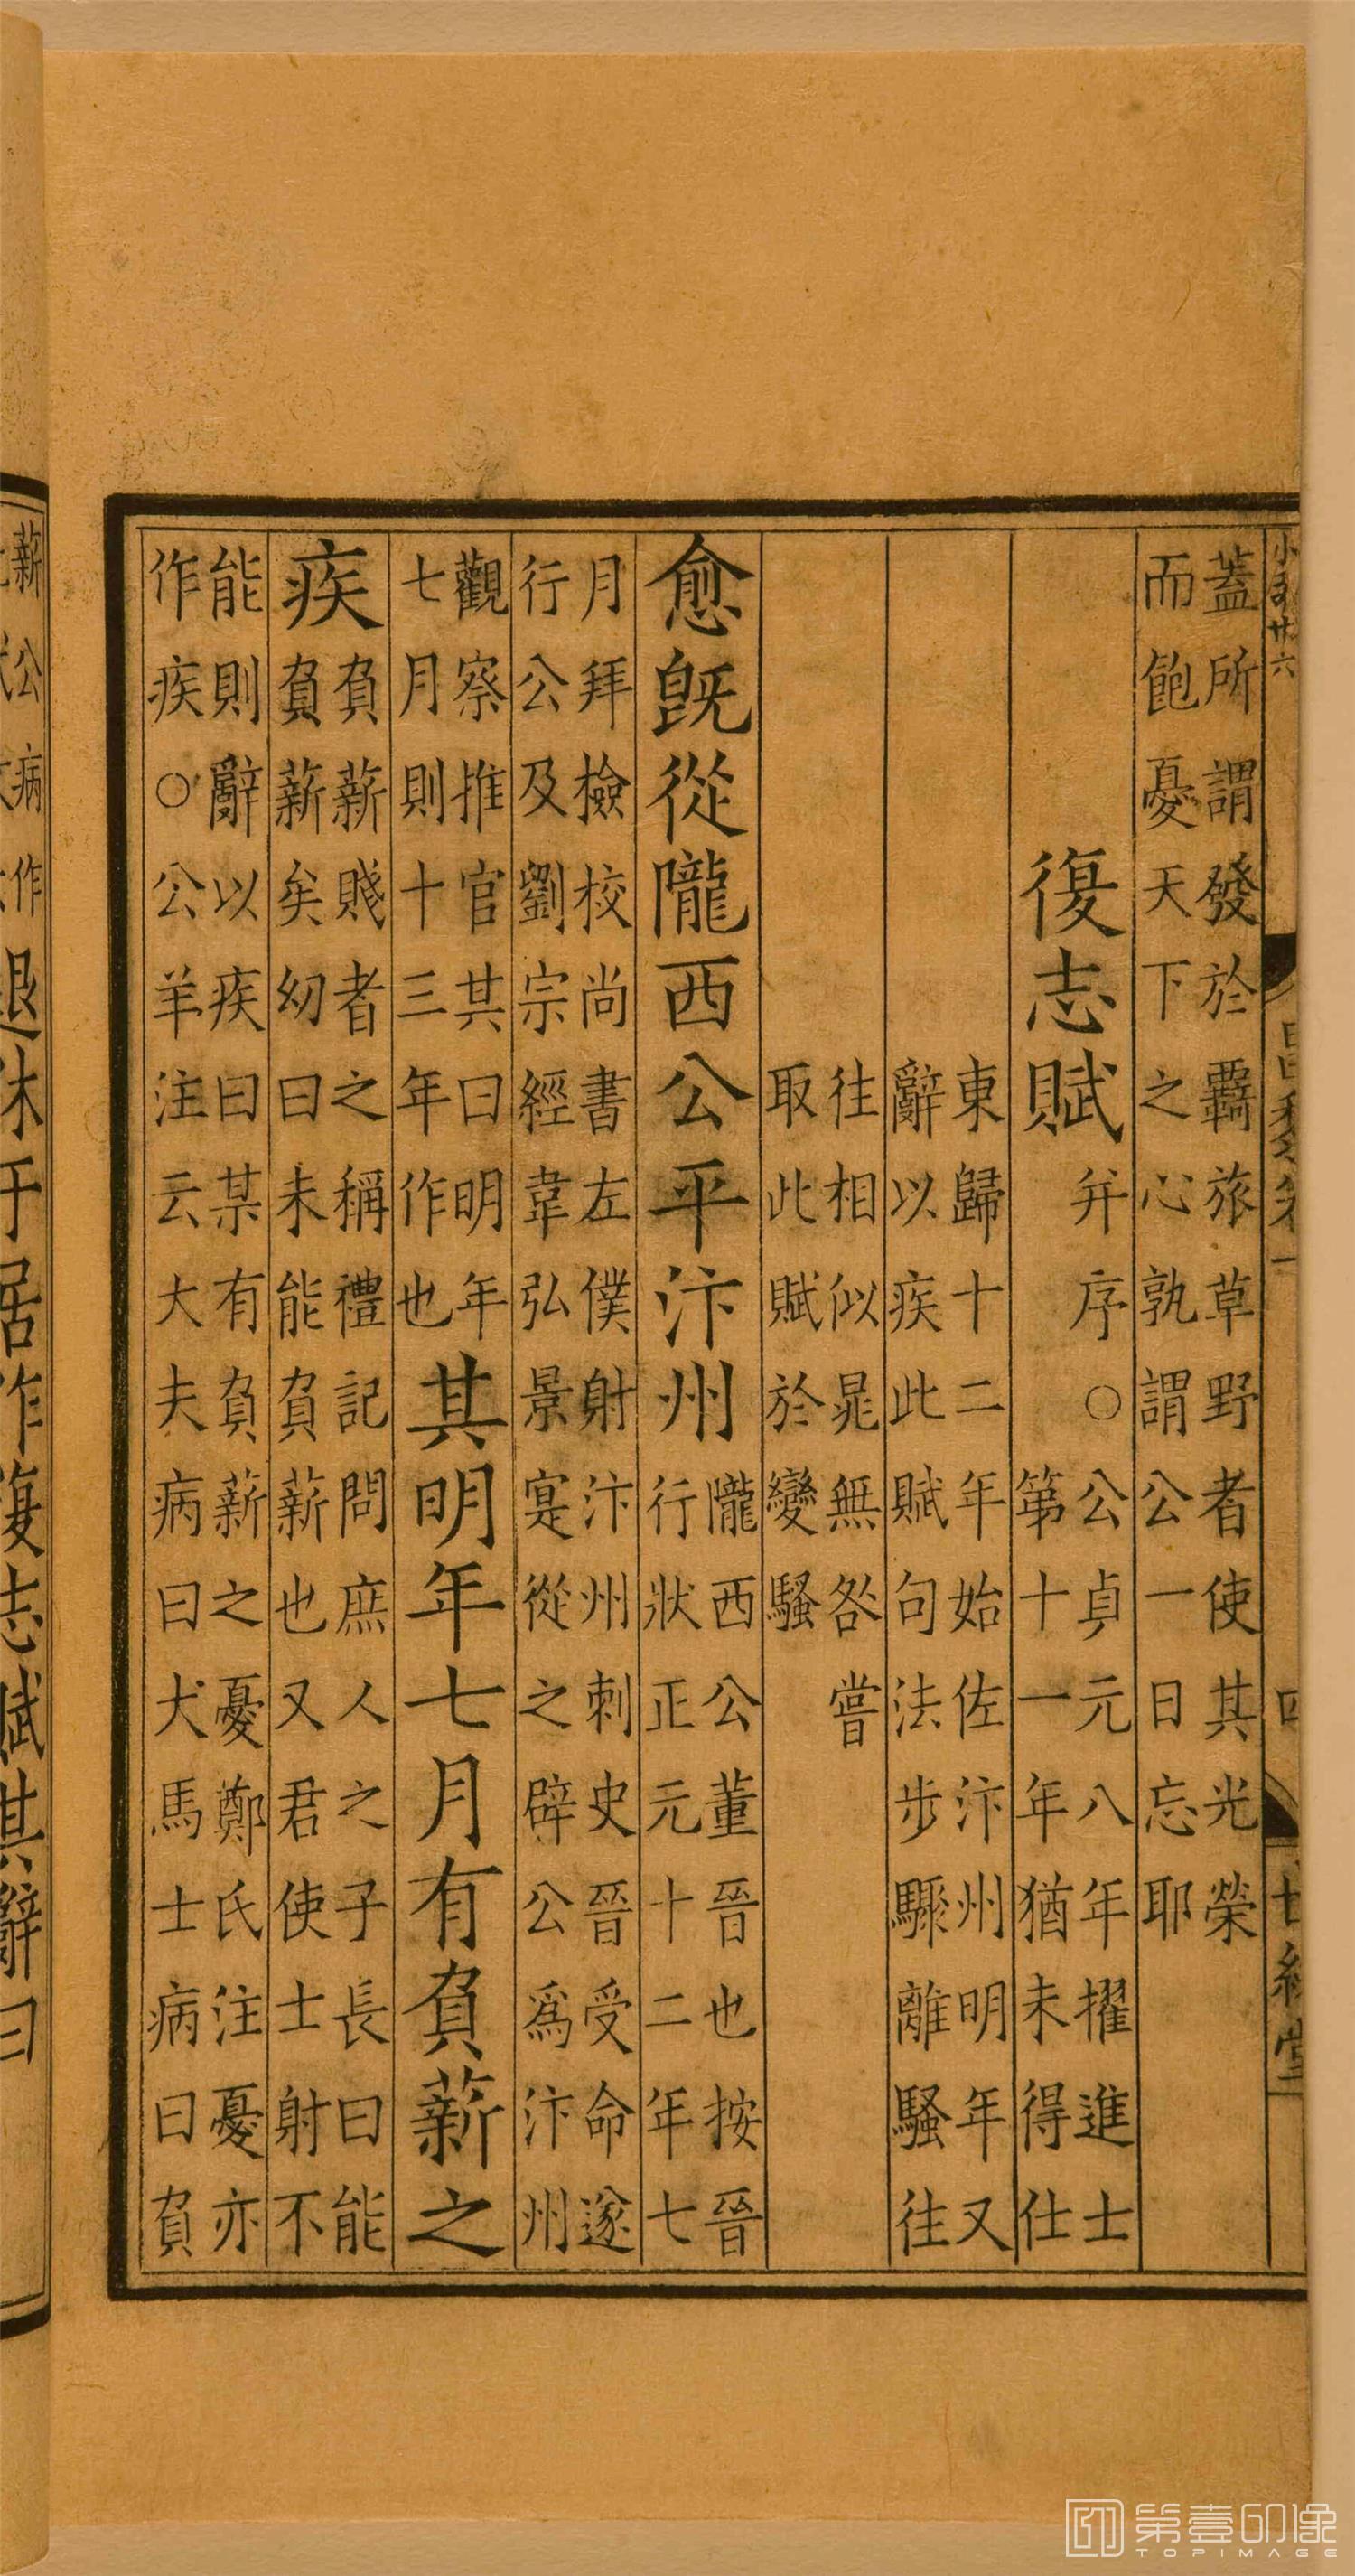 小四百廿六
昌黎卷一
四
世綵堂
蓋所謂發於羇旅草野者使其光榮
而飽憂天下之心孰謂公一日忘耶
復志賦
并序○公貞元八年擢進士
第十一年猶未得仕
東歸十二年始佐汴州明年又
辭以疾此賦句法步驟離騷徃
徃相似晁無咎嘗
取此賦於變騷
愈旣從隴西公平汴州
隴西公董晉也按晉
行狀正元十二年七
月拜檢校尚書左僕射汴州刺史晉受命遂
行公及劉宗經韋弘景寔從之辟公爲汴州
觀察推官其曰明年
七月則十三年作也
其明年七月有負薪之
疾
負薪賤者之稱禮記問庶人之子長曰能
負薪矣幼曰未能負薪也又君使士射不
能則辭以疾曰某有負薪之憂鄭氏注憂亦
作疾○公羊注云大夫病曰犬馬士病曰負
薪公病作
退休于居作復志賦其辭曰
第壹印像
TOPIMAGE